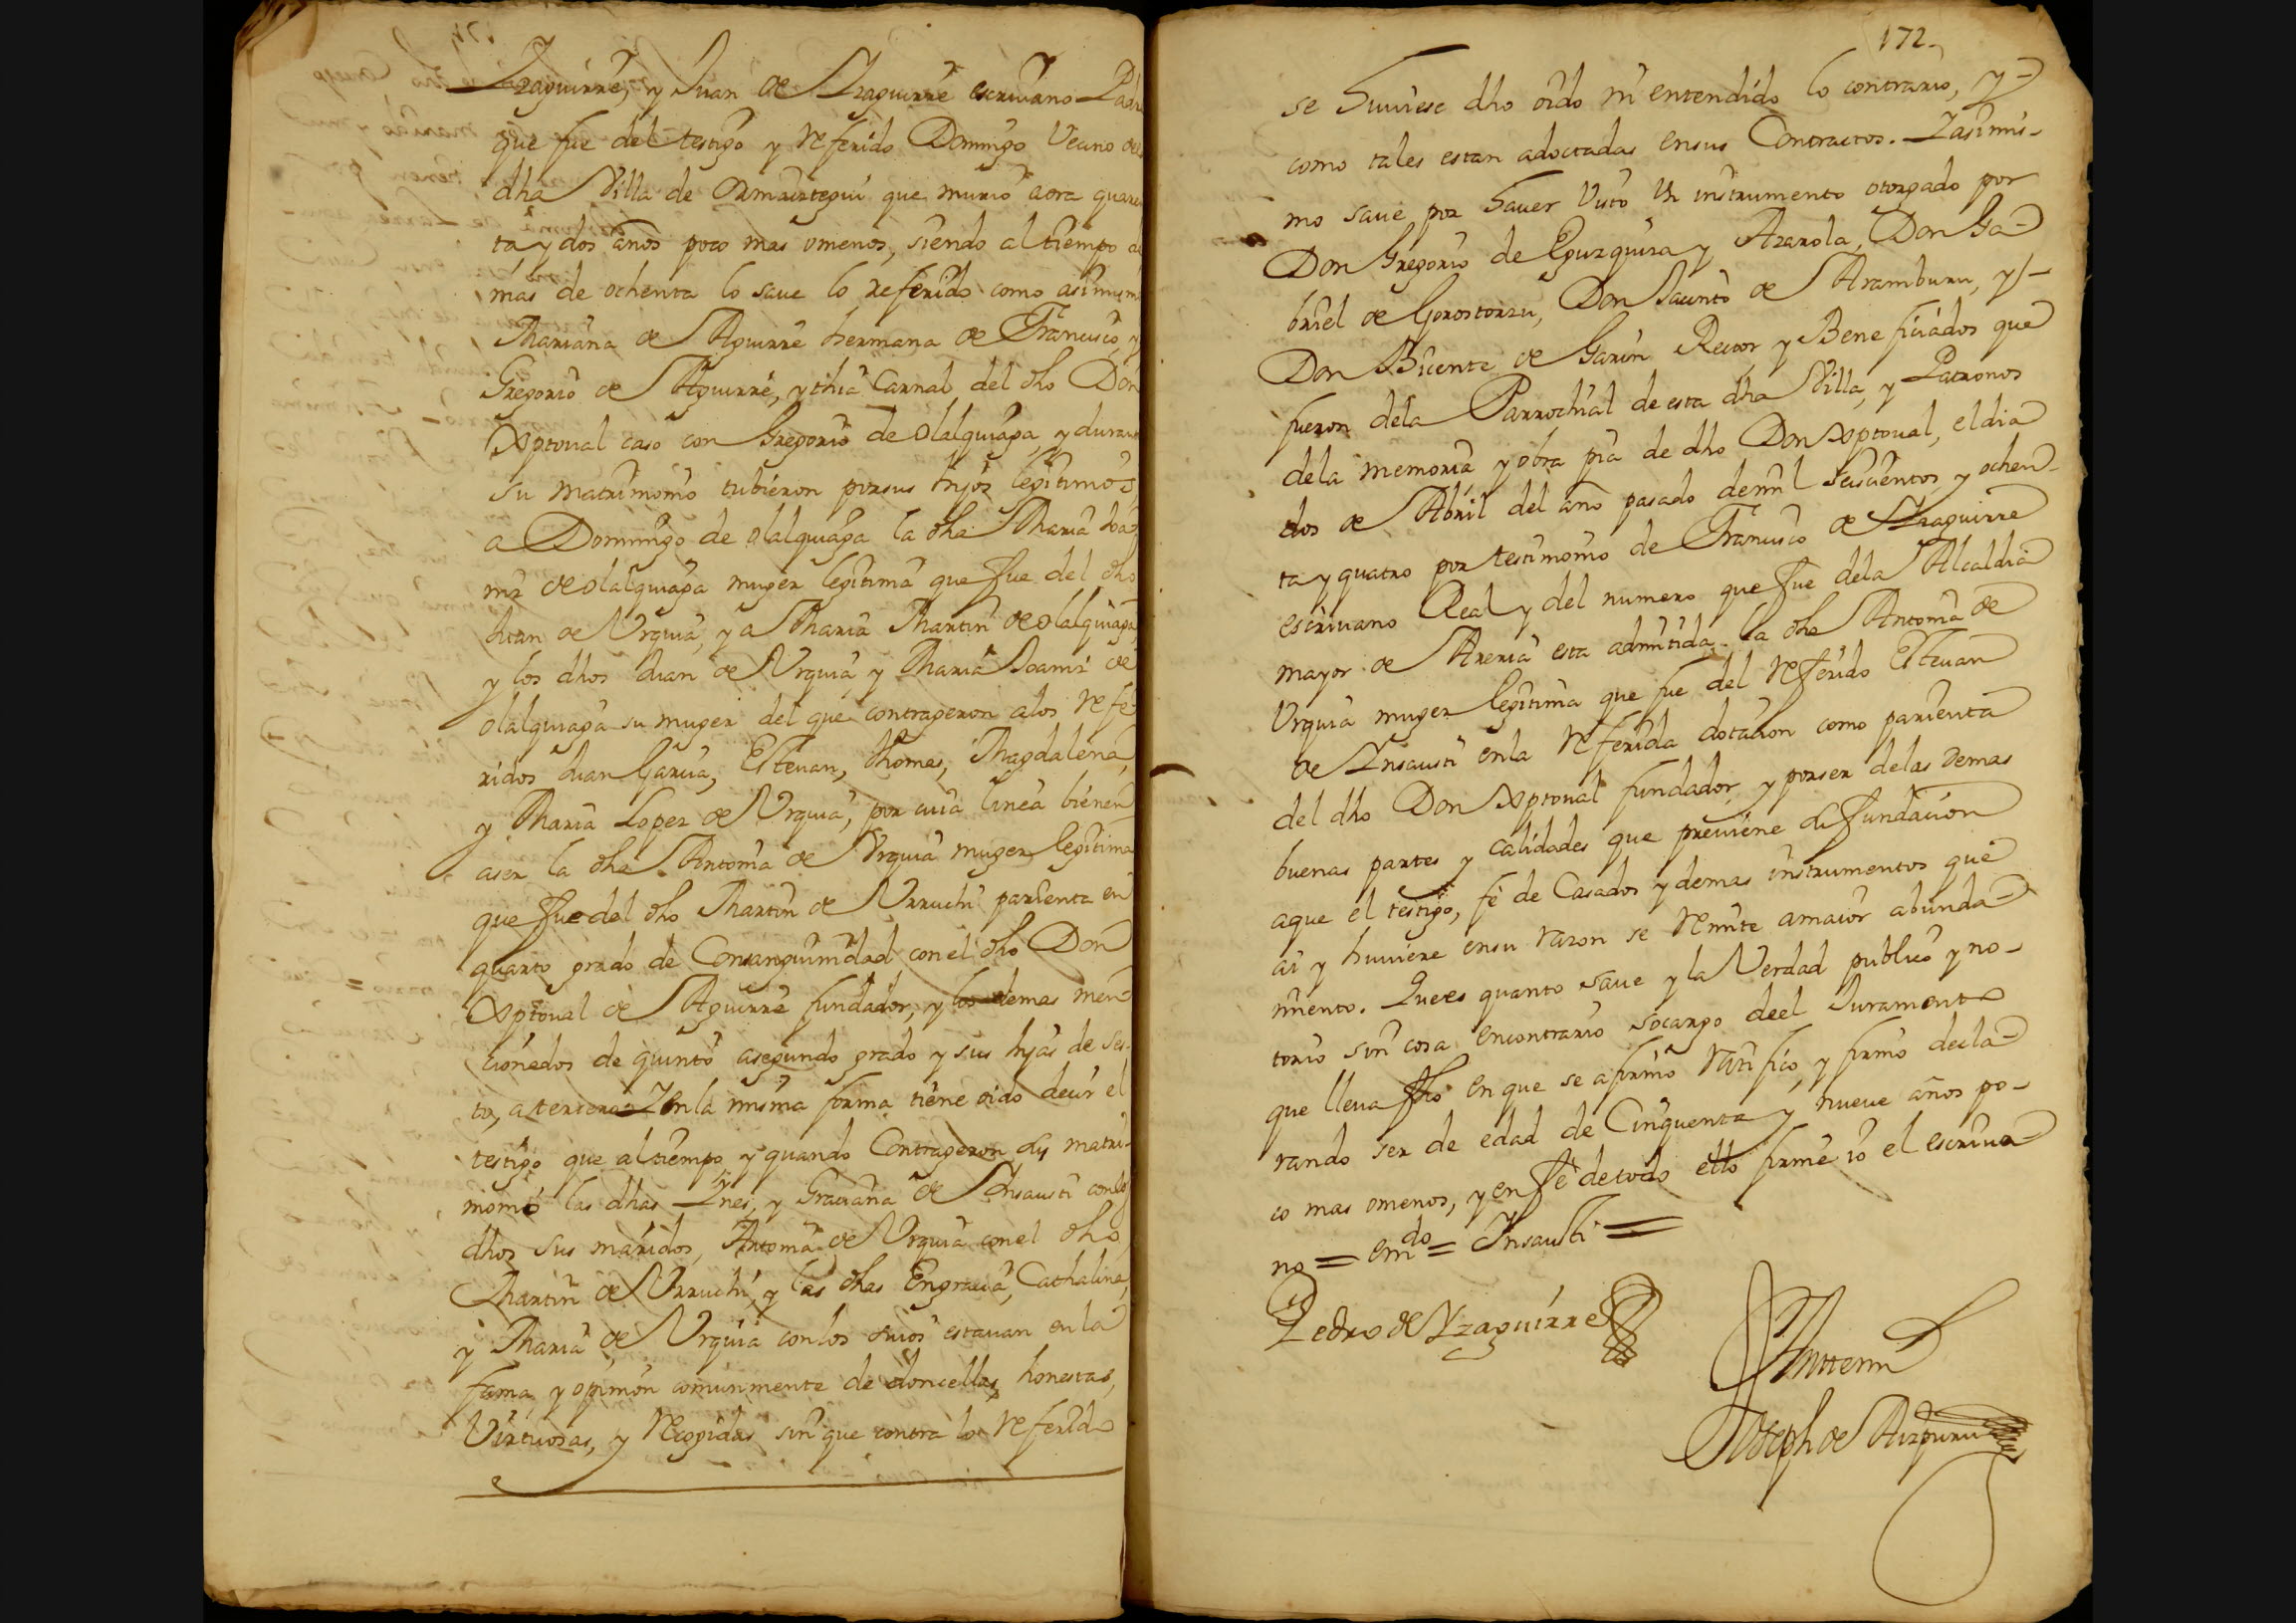 Yzaguirre, y Juan de Yzaguirre escriuano Padre
que fue del testigo y referido Domingo Vecino de
dha Villa de Ormaiztegui que murio aora quaren
ta y dos años poco mas omenos, siendo al tiempo de
mas de ochenta lo saue lo referido como asimismo
Maria de Aguirre hermana de Francisco, y
Gregorio de Aguirre, y thia Carnal del dho Don
Xptoual caso con Gregorio de Olalquiaga, y durante
su matrimonio tubieron porsus hijos legitimos,
a Domingo de olalquiaga la dha Maria Joa
mz de olalquiaga muger legitima que fue del dho
Juan de Vrquia, y a Maria Martin de olalquiaga,
y los dhos Juan de Vrquia y Maria Joamz de
olalquiaga su muger del que contrageron alos refe
ridos Juan Garcia, Esteuan, thomas, Magdalena,
y Maria Lopez de Vrquia, por cuia linea bienen
aser la dha Antonia de Vrquia muger legitima
que fue del dho Martin de Vrruchi parienta en
quarto grado de Consanguinidad con el dho Don
Xptoual de Aguirre fundador, y los demas men
cionedos de quinto asegundo grado y sus hijas de ses
to, atercero= Y enla misma forma tiene oido decir el
testigo, que al tiempo y quando Contrageron sus matri-
monio las dhas Ines, y Graciana de Insausti con los
dhos sus maridos, Antonia de Vrquia con el dho
Martin de Vrruchi, y las dhas Engracia, Cathalina,
y Maria de Vrquia con los suios estauan en la
fama y opinion comunmente de doncellas, honestas,
Virtuosas, y recogidas sin que contra lo referido
172.
se huuiese dho oido ni entendido lo contrario, y
como tales estan adoctadas ensus Contractos. Yasimis-
mo saue por hauer Visto Vn instrumento otorgado por
Don Gregorio de Eguzquiza y Arzarola, Don Ga
briel de Gorostorzu, Don Jacinto de Aramburu, y
Don Bicente de Garin Rector, y Beneficiados que
fueron dela Parrochial de esta dha Villa, y Patronos
dela memoria y obra pia de dho Don Xptoual, el dia
dos de Abril del año pasado demil seiscientos y ochen-
ta y quatro por testimonio de Francisco de Yzaguirre
escriuano Real y del numero que fue dela Alcaldia
mayor de Areria esta admitida la dha Antonia de
Vrquia muger legitima que fue del referido Esteuan
de Insausti enla referida dotacion como parienta
del dho Don Xptoual fundador, y porser delas demas
buenas partes y calidades que preuiene la fundacion
aque el testigo, fe de Casados y demas instrumentos que
ai y huuiere ensu razon se remite amaior abunda
miento. Quees quanto saue y la Verdad publico y no-
torio sin cosa encontrario socargo deel Juramento
que lleua fho en que se afirmo ratifico, y firmo decla
rando ser de edad de Cinquenta y nueue años po-
co mas omenos, y en fe de todo ello firme io el escriua
no = emdo = Insausti =
Pedro de Yzaguirre
Antemi
Joseph de Aizpuru